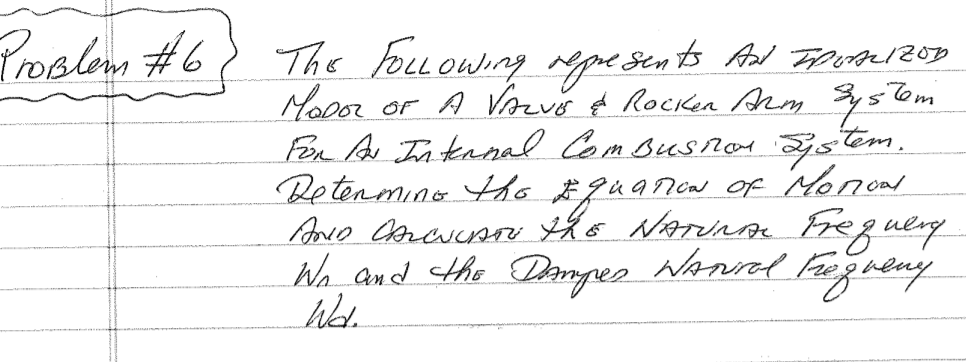 Problem #6 The Following represents An Idealized
Model of A Valve & Rocker Arm System
For An Internal Combustion System.
Determine the Equation of Motion
And Calculate the Natural Frequency
Wn and the Damped Natural Frequency
Wd.